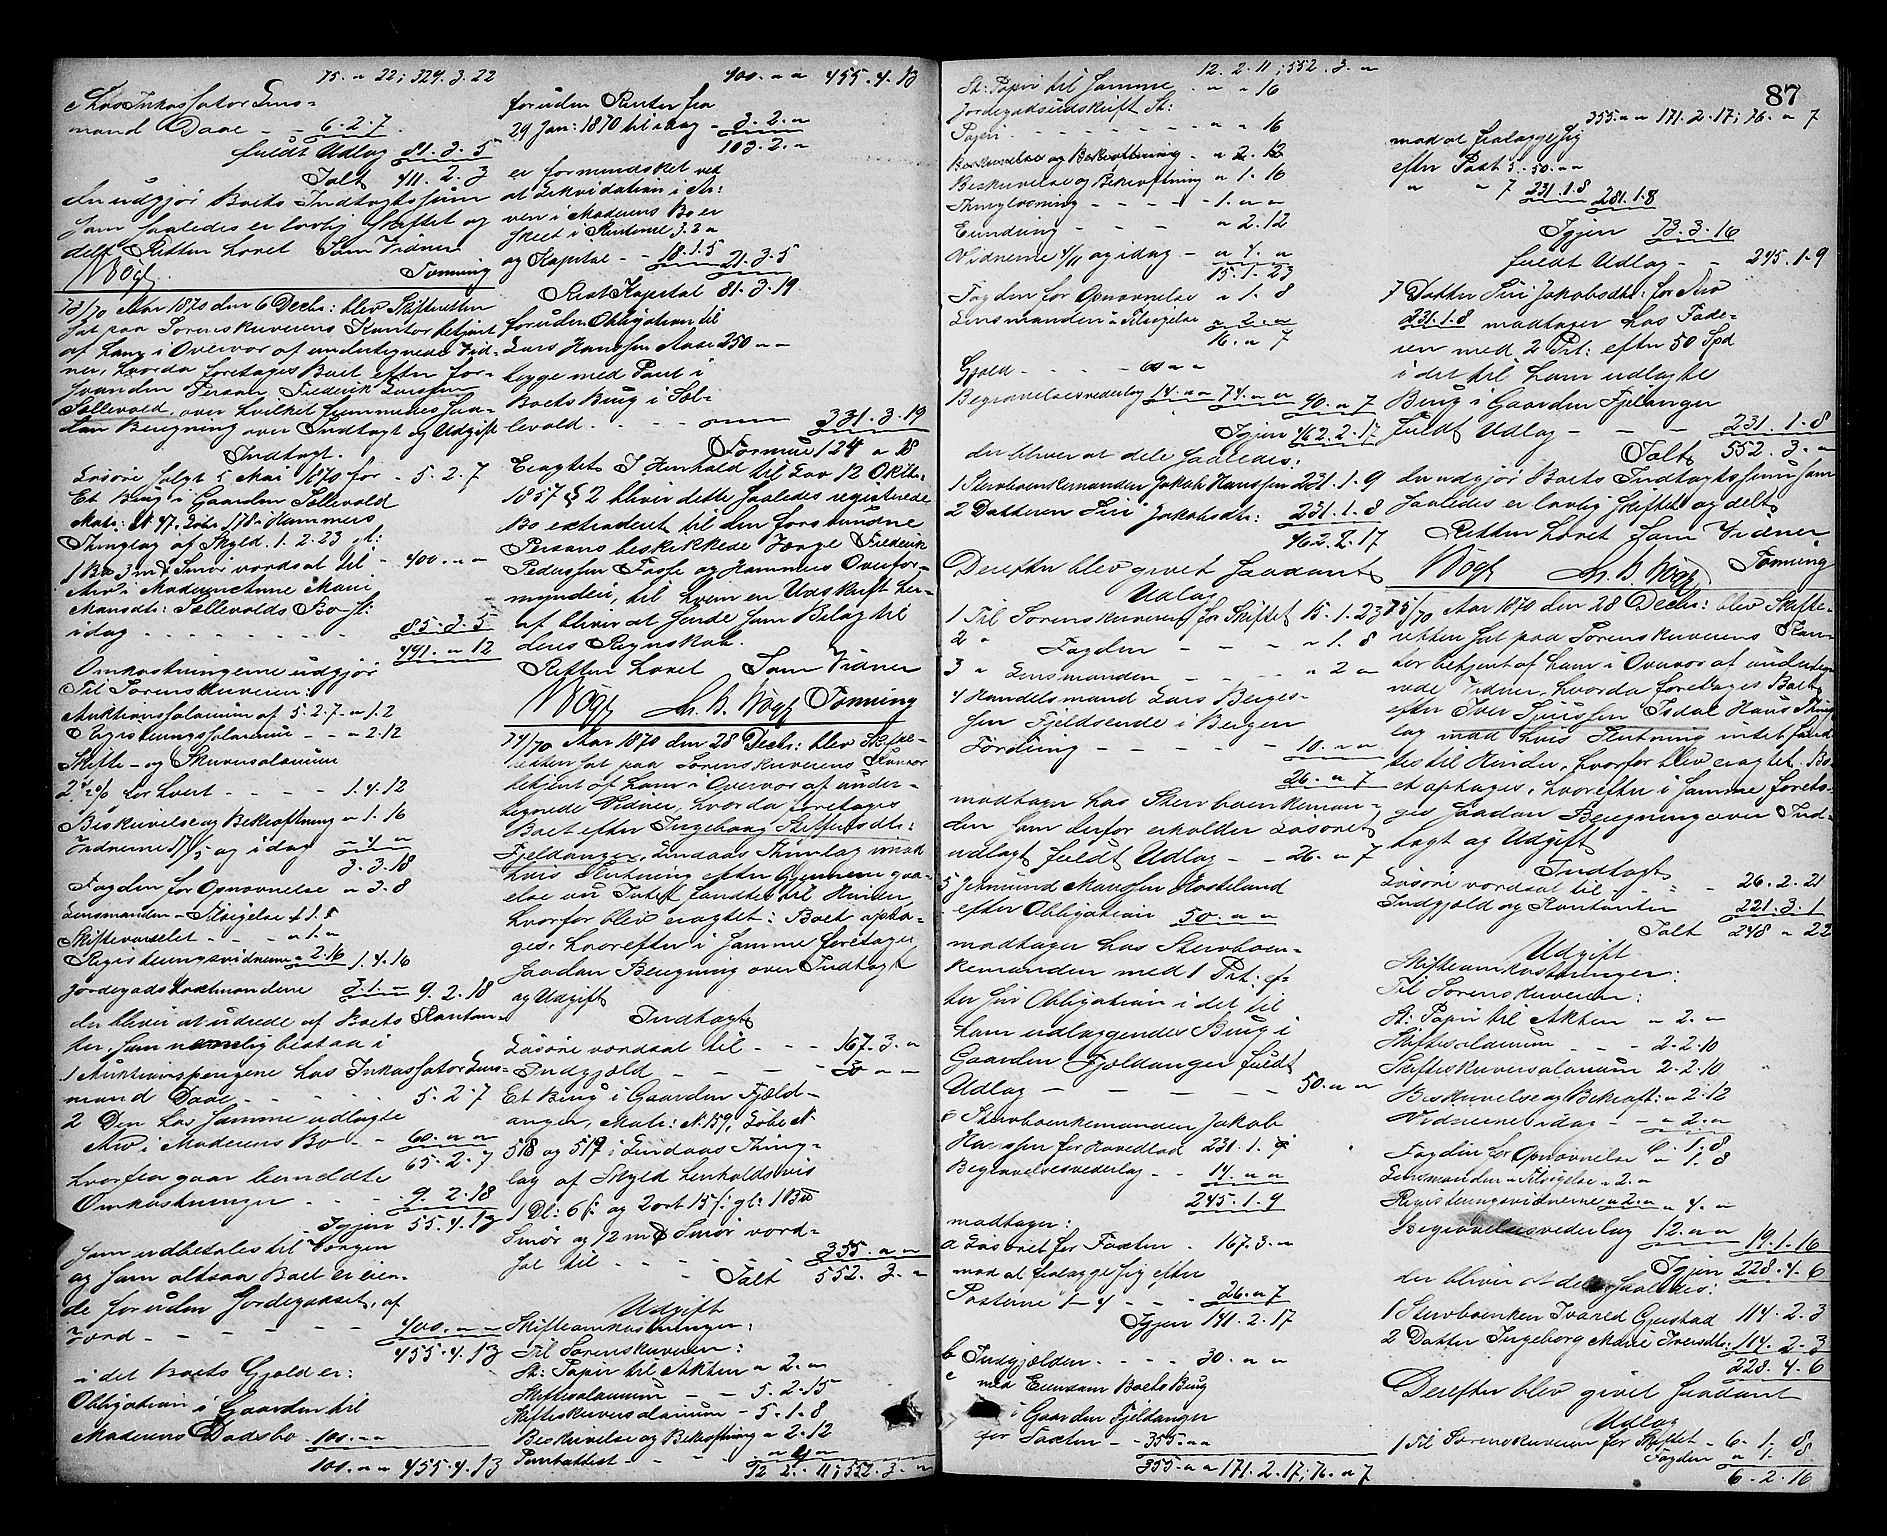 75. " 22; 324. 3. 22
c Hos Inkassator Lens-
mand Daae - - 6. 2. 7
fuldt Udlag 81. 3. 5
Talt 411. 2. 3
der udgjør Boets Indtægtssum
som saaledes er lovlig skiftet og
delt. Retten hævet Som Vidner
Vogt Tonning
73/70 Aar 1870 den 6 Decbr: blev Skifteretten
sat paa Sorenskriverens Kontor betjent
af ham i Overvær af undertegnede Vid-
ner, hvorda foretoges Boet efter for-
svundne Person Frederik Larssen
Sællevold, over hvilket fremmedes saa-
dan Beregning over Indtægt og Udgift
Indtægt
Løsøre solgt 5 Mai 1870 for - 5. 2. 7
Et Brug i Gaarden Sællevold
Matr: N. 47, Løbe 178 i Hammers
Thinglag af Skyld 1. 2. 23 gl:
1 Bp 3 mk Smør vordsat til - 400. " "
Arv i Moderen Anne Mari
Monsdt: Sællevolds Bo ifl:
idag - - - - - 85. 3. 5
491. " 12
Omkostningerne udgjør
Til Sorenskriveren:
Auktionssalarium af 5. 2. 7 - " 1. 2
Registreringssalarium - - " 2. 12
Skifte- og Skriversalarium
2 0/0 hver - - - - 1. 4. 12
Beskrivelse og Bekræftning " 1. 16
Vidnerne 17/5 og idag - " 4. "
3. 3. 18
Fogden for Opnævnelse " 3. 8
Lensmanden " Tilsigelse " 1. 8
Skiftevarselet - - - " 1. "
Registreringsvidnerne " 2. 16 1. 4. 16
Jordegods Taxtmændene 3. 1. " 9. 2. 18
der bliver at udrede af Boets Kontan-
ter, som nemlig bestaar i
1 Auktionspengene hos Inkassator Lens-
mand Daae - - - - 5. 2. 7
2 Den hos samme udlagte
Arv i Moderens Bo - - 60. " "
65. 2. 7
hvorfra gaar bemeldte
Omkostninger - - 9. 2. 18
Igjen 55. 4. 13
som udbetales til Værgen
og som altsaa Boet er eien-
de foruden Jordegodset, af
Værd - - - - - 400. " "
455. 4. 13
i det Boets Gjeld er:
Obligation i Gaarden til
Moderens Dødsbo 100. " "
100. " " 455. 4. 13
400. " " 455. 4. 13
foruden Renter fra
29 Jan: 1870 til idag - 3. 2. "
103. 2. "
er formindsket ved
at Likvidation i Ar-
ven i Moderens Bo er
skeet i Renterne 3. 2 "
og Kapital - - 18. 1. 5 21. 3. 5
Rest Kapital 81. 3. 19
foruden Obligation til
Lars Hanssen Aase 250 " "
begge med Pant i
Boets Brug i Sæl-
levold. - - - 331. 3. 19
Formue 124 " 18
Eragtet. I Henhold til Lov 12 Oktbr.
1857 § 2 bliver dette saaledes registrerede
Bo extraderet til den forsvundne
Persons beskikkede Værge Frederik
Pederssen Fosse og Hammers Overfor-
mynderi, til hvem en Udskrift her-
af bliver at sende som Bilag til
deres Regnskab.
Retten hævet Som Vidner
Vogt Chr. B. Vogt Tonning
74/70 Aar 1870 den 28 Decbr: blev Skifte-
retten sat paa Sorenskriverens Kontor
betjent af ham i Overvær af under-
tegnede Vidner, hvorda foretoges
Boet efter Ingeborg Steffensdt:
Fjeldanger, Lindaas Thinglag mod
hvis Slutning efter Gjennemgaa-
else nu Intet fandtes til Hinder,
hvorfor blev eragtet: Boet opta-
ges; hvorefter i samme foretoges
saadan Beregning over Indtægt
og Udgift
Indtægt
Løsøre vordsat til - - - 167. 3. "
Indgjæld - - - - - 30 " "
Et Brug i Gaarden Fjeld-
anger, Matr: N. 159, Løbe N.
518 og 519 i Lindaas Thing-
lag af Skyld henholdsvis
1 Dl: 6 s: og 2 ort 15 s: gl: 1 Bp
Smør og 12 mk Smør vord-
sat til - - - - - 355. " "
Talt 552. 3. "
Udgift
Skifteomkostninger:
Til Sorenskriveren:
St: Papir til Akten " 2. "
Skiftesalarium - - 5. 2. 15
Skifteskriversalarium - 5. 1. 8
Beskrivelse og Bekræftning " 2. 12
Panteattest - - - " 4 "
12 2. 11; 552. 3. "
12. 2. 11; 552. 3. "
St: Papir til samme - " " 16
Jordegodsudskrift St:
Papir - - - - - - " " 16
Beskrivelse og Bekræftning - " 2. 12
Beskrivelse og Bekræftning " 1. 16
Thinglæsning - - - - 1. " "
Grundning - - - " 2. 12
Vidnerne 4/11 og idag - " 4. "
15. 1. 23
Fogden for Opnævnelse " 1. 8
Lensmanden " Tilsigelse " 2. "
16. " 7
Gjæld - - - - 60 " "
Begravelsesvederlag 14. " " 74. " " 90. " 7
Igjen 462. 2. 17
der bliver at dele saaledes:
1 Stervboenkemanden Jakob Hanssen 231. 1. 9
2 Datteren Siri Jakobsdt: 231. 1. 8
462. 2. 17
Derefter blev givet saadant
Udlag
1 Til Sorenskriveren for Skiftet 15. 1. 23
2 " Fogden - - - " 1. 8
3 " Lensmanden - - - - " 2 "
4 Handelsmand Lars Berges-
sen Fjeldsende i Bergen
Fordring - - - - - 10. " "
26. " 7
modtager hos Stervboenkeman-
den som derfor erholder Løsøret
udlagt fuldt Udlag - - 26. " 7
5 Jermund Monssen Hosteland
efter Obligation 50. " "
modtager hos Stervboen-
kemanden med 1 Prt: ef-
ter sin Obligation i det til
ham udlæggendes Brug i
Gaarden Fjeldanger fuldt
Udlag - - - - - 50. " "
6 Stervboenkemanden Jakob
Hanssen for Hovedlod 231. 1. 9
Begravelsesvederlag - - 14. " "
245. 1. 9
modtager:
a Løsøret for Taxten - 167. 3. "
mod at fralægge sig efter
Posterne 1-4 - - - 26. " 7
Igjen 141. 2. 17
b Indgjælden - - - - 30. " "
c med Eiendom Boets Brug
i Gaarden Fjeldanger
for Taxten - - 355. " "
355. " " 171. 2. 17; 76. " 7
87
355. " " 171. 2. 17; 76. " 7
mod at fralægge sig
efter Post 5. 50. " "
" " 7 231. 1. 8 281. 1. 8
Igjen 73. 3. 16
fuldt Udlag - - 245. 1. 9
7 Datter Siri Jakobsdt: for Arv
231. 1. 8 modtager hos Fade-
ren med 2 Prt: efter 50 Spd
i det til ham udlagte
Brug i Gaarden Fjelanger
fuldt Udlag - - - 231. 1. 8
Talt 552. 3. "
der udgjør Boets Indtægtssum som
saaledes er lovlig skiftet og delt.
Retten hævet som Vidner
Vogt Chr. B. Vogt Tonning
75/70 Aar 1870 den 28 Decbr: blev Skifte-
retten sat paa Sorenskriverens Kon-
tor betjent af ham i Overvær af underteg-
nede Vidner, hvorda foretoges Boet
efter Iver Sjurssen Isdal Hans Thing-
lag mod hvis Slutning intet fand-
tes til Hinder, hvorfor blev eragtet: Bo-
et optages, hvorefter i samme foreto-
ges saadan Beregning over Ind-
tægt og Udgift
Indtægt
Løsøre vordsat til - - - 26. 2. 21
Indgjæld og Kontanter 221. 3. 1
Talt 248 " 22
Udgift
Skifteomkostninger:
Til Sorenskriveren:
St: Papir til Akten " 2. "
Skiftesalarium - - - 2. 2. 10
Skifteskriversalarium 2. 2. 10
Beskrivelse og Bekræft: " 2. 12
Vidnerne idag - - " 2. "
6. 1. 8
Fogden for Opnævnelse " 1. 8
Lensmanden " Tilsigelse " 2. "
Registreringsvidnerne " 2. " " 4. "
Begravelsesvederlag 12. " " 19. 1. 16
Igjen 228. 4. 6
der bliver at dele saaledes:
1 Stervboenken Ivared Gjerstad 114. 2. 3
2 Datter Ingeborg Marie Iversdt: 114. 2. 3
228. 4. 6
Derefter blev givet saadant
Udlag
1 Til Sorenskriveren for Skiftet - 6. 1. 8
Fogden " 1. 8
6. 2. 16